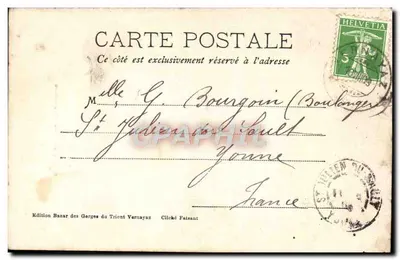 CARTE POSTALE
Ce côté est exclusivement réservé à l'adresse
HELVETIA
5
Melle G. Bourgoin (Boulanger)
St Julien du Sault
Yonne
France
ST JULIEN DU SAULT
YONNE
Edition Bazar des Gorges du Trient Vernayaz Cliché Faisant